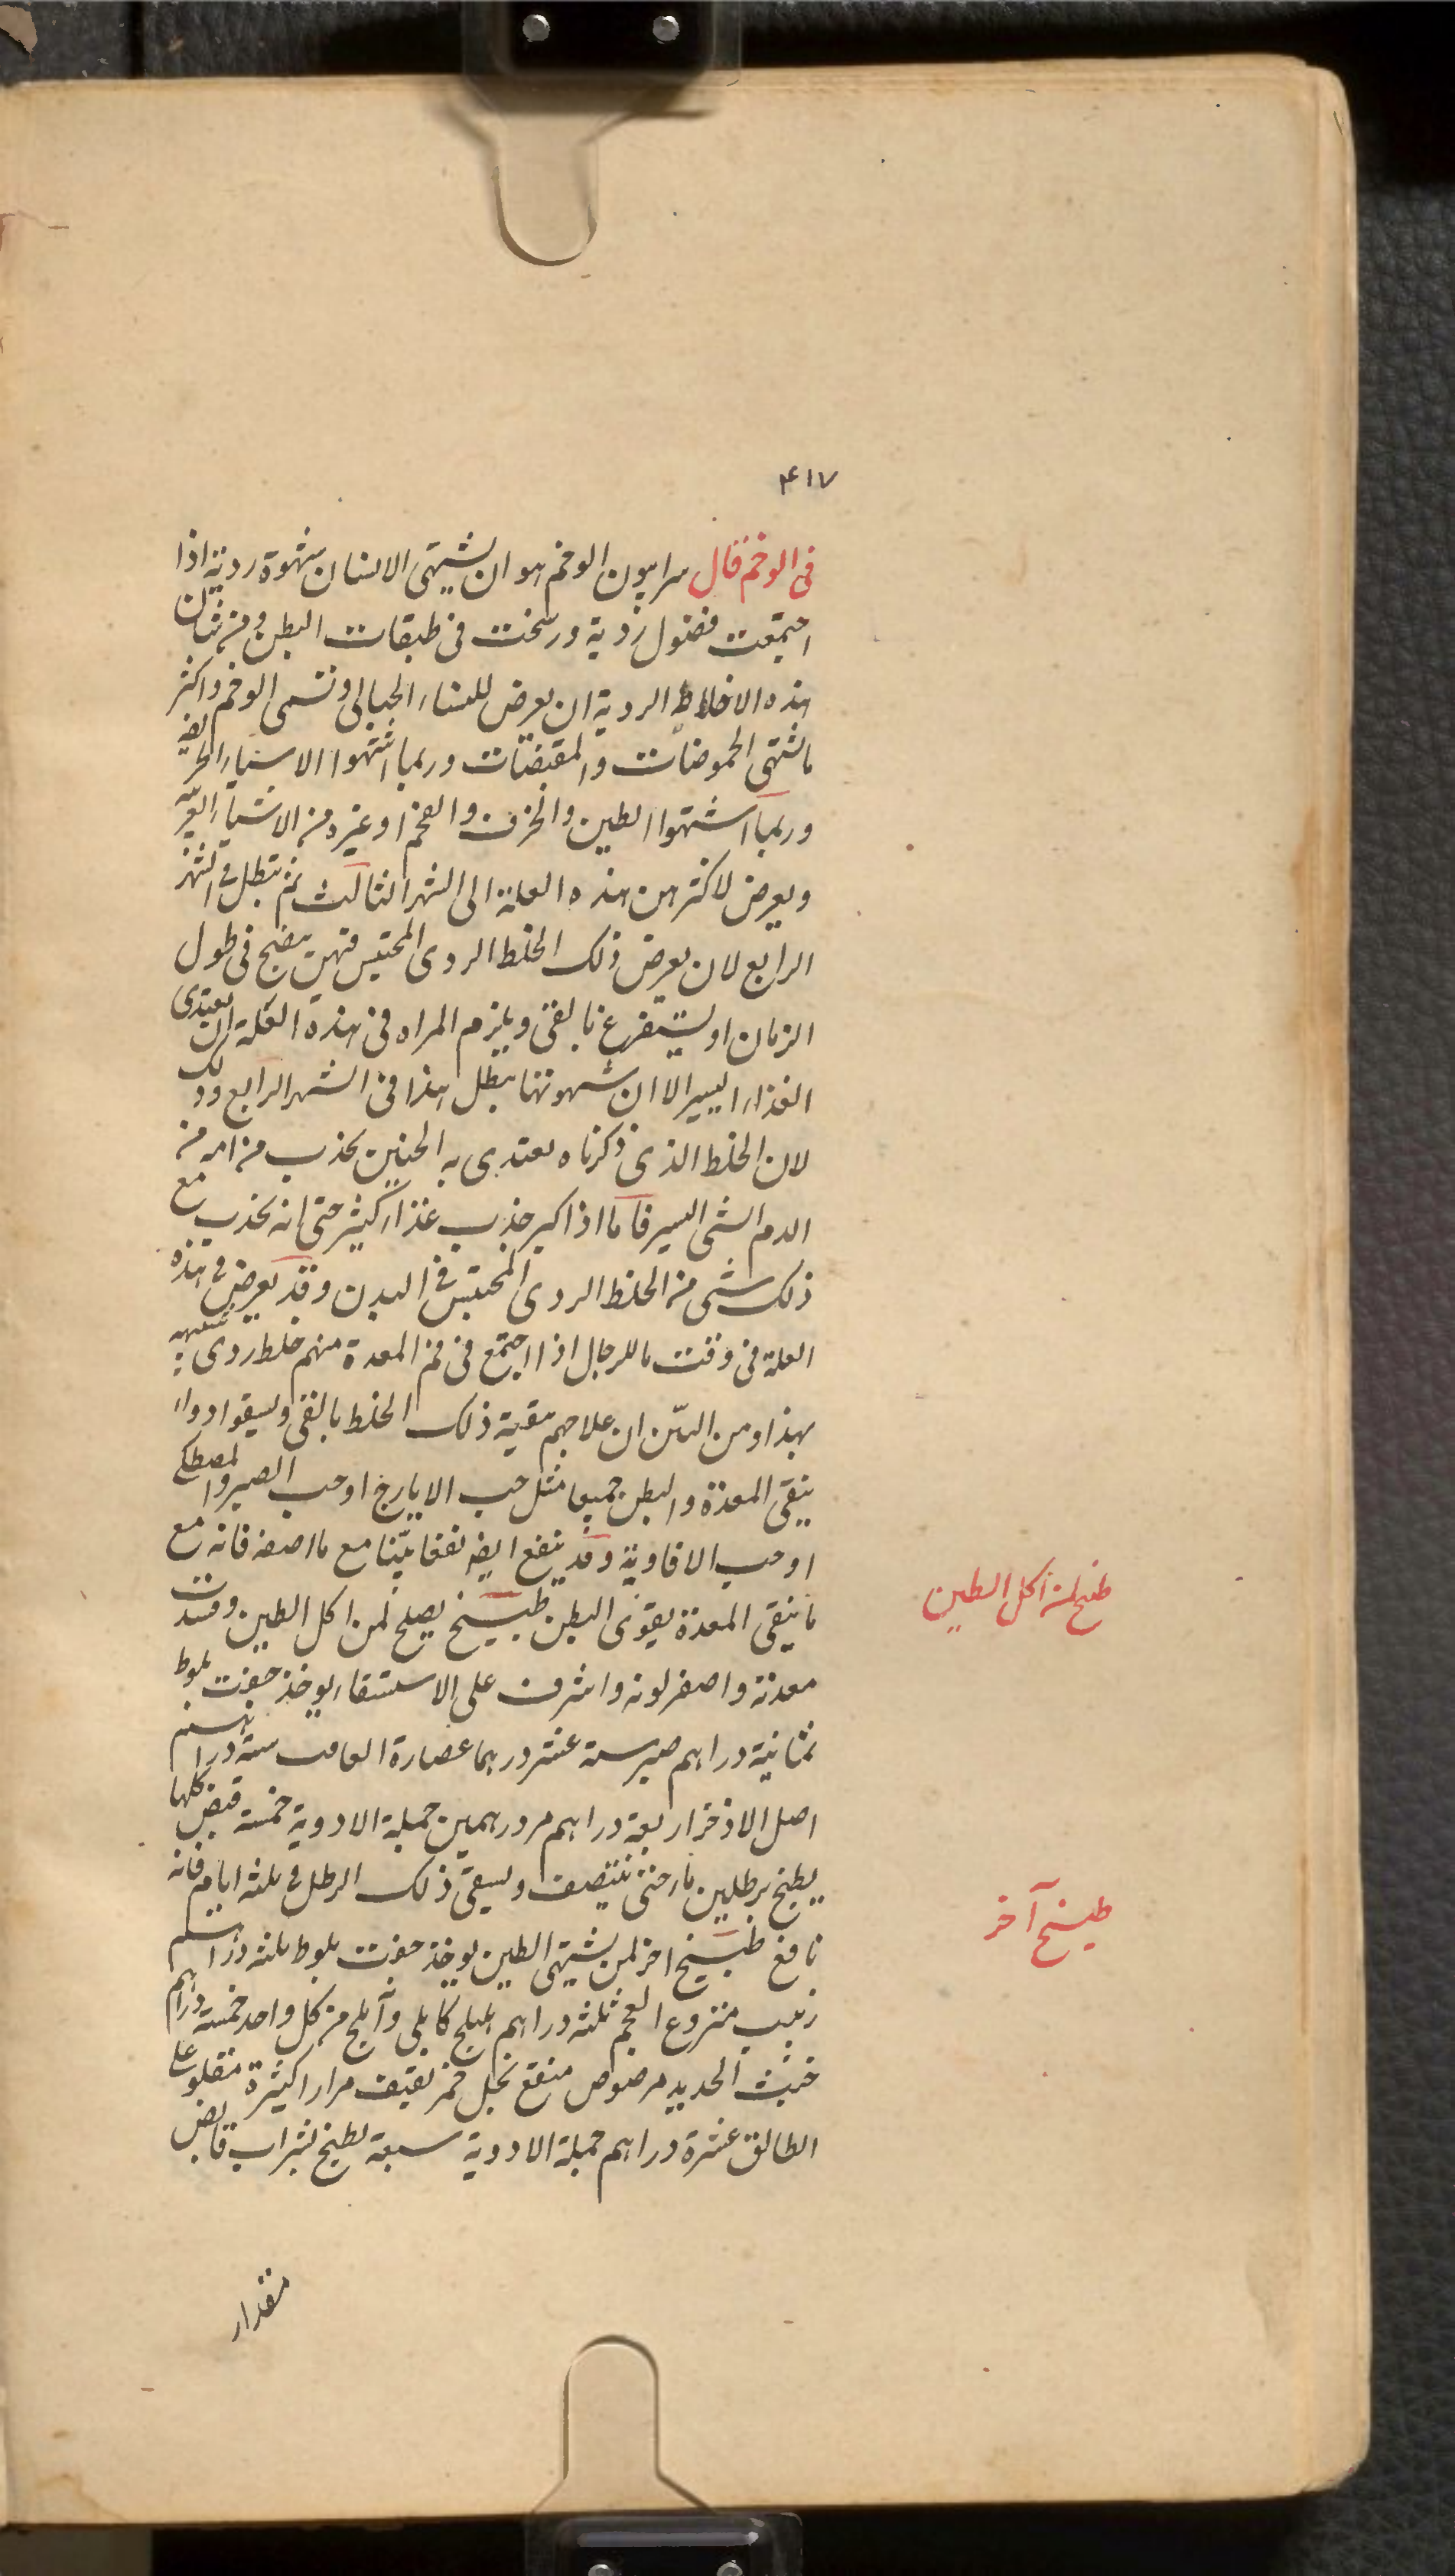 ۴۱۷
فى الوخم قال سرابيون الوخم هو ان يشتهى الانسان شهوة ردية اذا
اجتمعت فضول ردية ورسخت فى طبقات البطن ومن شان
هذه الاخلاط الردية ان يعرض للنساء الحبالى وتسمى الوخم واكثر
ما يشتهى الحموضات والمقبضات وربما اشتهوا الاشياء الحريفة
وربما اشتهوا الطين والخزف والفحم او غيره من الاشياء
ويعرض لاكثرهن هذه العلة الى الشهر الثالث ثم تبطل فى الشهر
الرابع لان يعرض ذلك الخلط الردى المحتبس فيهن ينضج فى طول
الزمان او يستفرغ بالقى ويلزم المراه فى هذه العلة ان يغتدى
الغذاء اليسير الا ان شهوتها يبطل هذا فى الشهر الرابع وذلك
لان الخلط الذى ذكرناه يعتدى به الجنين يجذب من امه من
الدم الشى اليسير فاما اذا كبر جذب غذاء كثير حتى انه يجذب مع
ذلك شى من الخلط الردى المحتبس فى البدن وقد يعرض فى هذه
العلة فى وقت ما للرجال اذا اجتمع فى فم المعدة منهم خلط ردى شبيه
بهذا ومن البيّن ان علاجهم تنقية ذلك الخلط بالقى ويسقوا دواء
ينقى المعدة والبطن جميعا مثل حب الايارج او حب الصبر والمصطكى
او حب الافاوية وقد ينفع ايضه نفعا بيّنا مع ما اصفه فانه مع
ما ينقى المعدة يقوى البطن طبيخ يصلح لمن اكل الطين وفسدت
معدته واصفر لونه واشرف على الاستسقاء يوخذ جفت بلوط
ثمانية دراهم صبر ستة عشر درهما عصارة الغافت ستة دراهم
اصل الاذخر اربعة دراهم مر درهمين جملة الادوية خمسة قبض كلها
يطبخ برطلين ماء حتى ينتصف ويسقى ذلك الرطل فى ثلثه ايام فانه
نافع طبيخ اخر لمن يشتهى الطين يوخذ جفت بلوط ثلثه دراهم
زبيب منزوع العجم ثلثه دراهم هليلج كابلى وآملج من كل واحد خمسة دراهم
خبث الحديد مرضوض منقع بخل خمر ثقيف مرارا كثيرة مقلو على
الطابق عشرة دراهم جملة الادوية سبعة يطبخ بشراب قابض
مقدار
طبيخ لمن اكل الطين
طبيخ آخر